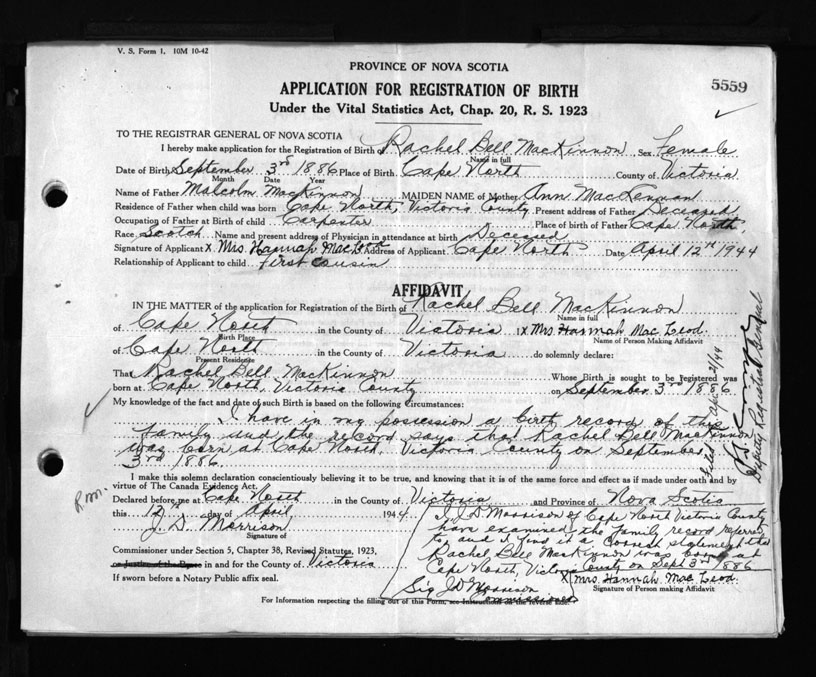 V. S. Form 1. 10M 10-42
PROVINCE OF NOVA SCOTIA
5559
APPLICATION FOR REGISTRATION OF BIRTH
Under the Vital Statistics Act, Chap. 20, R. S. 1923
TO THE REGISTRAR GENERAL OF NOVA SCOTIA
I hereby make application for the Registration of Birth of Rachel Bell MacKinnon Sex Female
Name in full
Date of Birth September 3rd 1886 Place of Birth Cape North County of Victoria
Month Date Year
Name of Father Malcolm MacKinnon MAIDEN NAME of Mother Ann MacLennan
Residence of Father when child was born Cape North, Victoria County Present address of Father Deceased
Occupation of Father at Birth of child Carpenter Place of birth of Father Cape North,
Race Scotch Name and present address of Physician in attendance at birth Deceased
Signature of Applicant X Mrs. Hannah MacLeod Address of Applicant Cape North Date April 12th 1944
Relationship of Applicant to child first cousin
AFFIDAVIT
IN THE MATTER of the application for Registration of the Birth of Rachel Bell MacKinnon
Name in full
of Cape North in the County of Victoria I X Mrs. Hannah Mac Leod.
Birth Place Name of Person Making Affidavit
of Cape North in the County of Victoria do solemnly declare:
Present Residence
That Rachel Bell MacKinnon Whose Birth is sought to be registered was
born at Cape North, Victoria County on September 3rd 1886
My knowledge of the fact and date of such Birth is based on the following Circumstances:
I have in my possession a birth record of this
family and the record says that Rachel Bell MacKinnon
was born at Cape North, Victoria County on September
3rd 1886
I make this solemn declaration conscientiously believing it to be true, and knowing that it is of the same force and effect as if made under oath and by
virtue of The Canada Evidence Act.
Declared before me at Cape North in the County of Victoria and Province of Nova Scotia
this 12th day of April 1944
J. D. Morrison
Signature of
Commissioner under Section 5, Chapter 38, Revised Statutes, 1923,
or Justice of the Peace in and for the County of Victoria
If sworn before a Notary Public affix seal.
I J.D Morrison of Cape North Victoria County
have examined the family record referred
to, and I find it a Correct statement that
Rachel Bell MacKinnon was born at
Cape North, Victoria County on Sept 3rd 1886
Sig J D Morrison
Commissioner
X Mrs. Hannah Mac Leod.
Signature of Person making Affidavit
For Information respecting the filling out of this Form, see Instructions on the reverse side.
R.M.
Deputy Registrar General